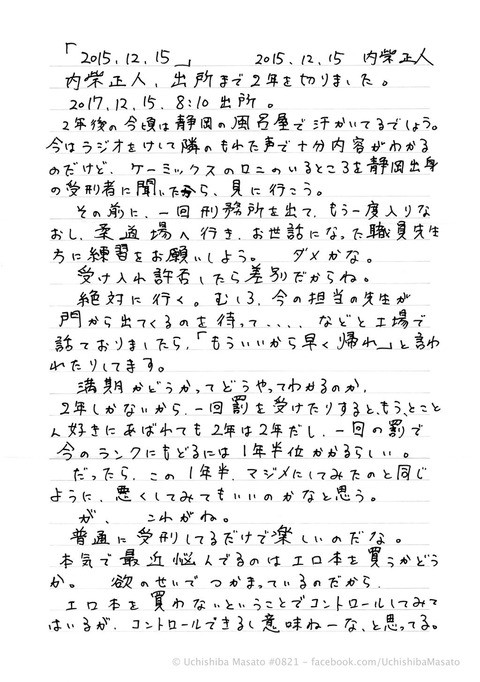 「2015.12.15」　　2015.12.15　内柴正人
内柴正人、出所まで2年を切りました。
2017.12.15.8:10出所。
2年後の今頃は静岡の風呂屋で汗かいてるでしょう。
今はラジオをけして隣のもれた声で十分内容がわかる
のだけど、ケーミックスのロニのいるところを静岡出身
の受刑者に聞いたから、見に行こう。
その前に、一回刑務所を出て、もう一度入りな
おし、柔道場へ行き、お世話になった職員先生
方に練習をお願いしよう。　ダメかな。
受け入れ許否したら差別だからね。
絶対に行く。むしろ、今の担当の先生が
門から出てくるのを待って、、、、などと工場で
話ておりましたら、「もういいから早く帰れ」と言わ
れたりしてます。
満期かどうかってどうやってわかるのか、
2年しかないから、一回罰を受けたりすると、もう、とこと
ん好きにあばれても2年は2年だし、一回の罰で
今のランクにもどるには1年半位かかるらしい。
だったら、この1年半、マジメにしてみたのと同じ
ように、悪くしてみてもいいのかなと思う。
が、　これがね。
普通に受刑してるだけで楽しいのだな。
本気で最近悩んでるのはエロ本を買うかどう
か。　欲のせいでつかまっているのだから、
エロ本を買わないということでコントロールしてみて
はいるが、コントロールできるし意味ねーな、と思ってる。
© Uchishiba Masato #0821 – facebook.com/UchishibaMasato